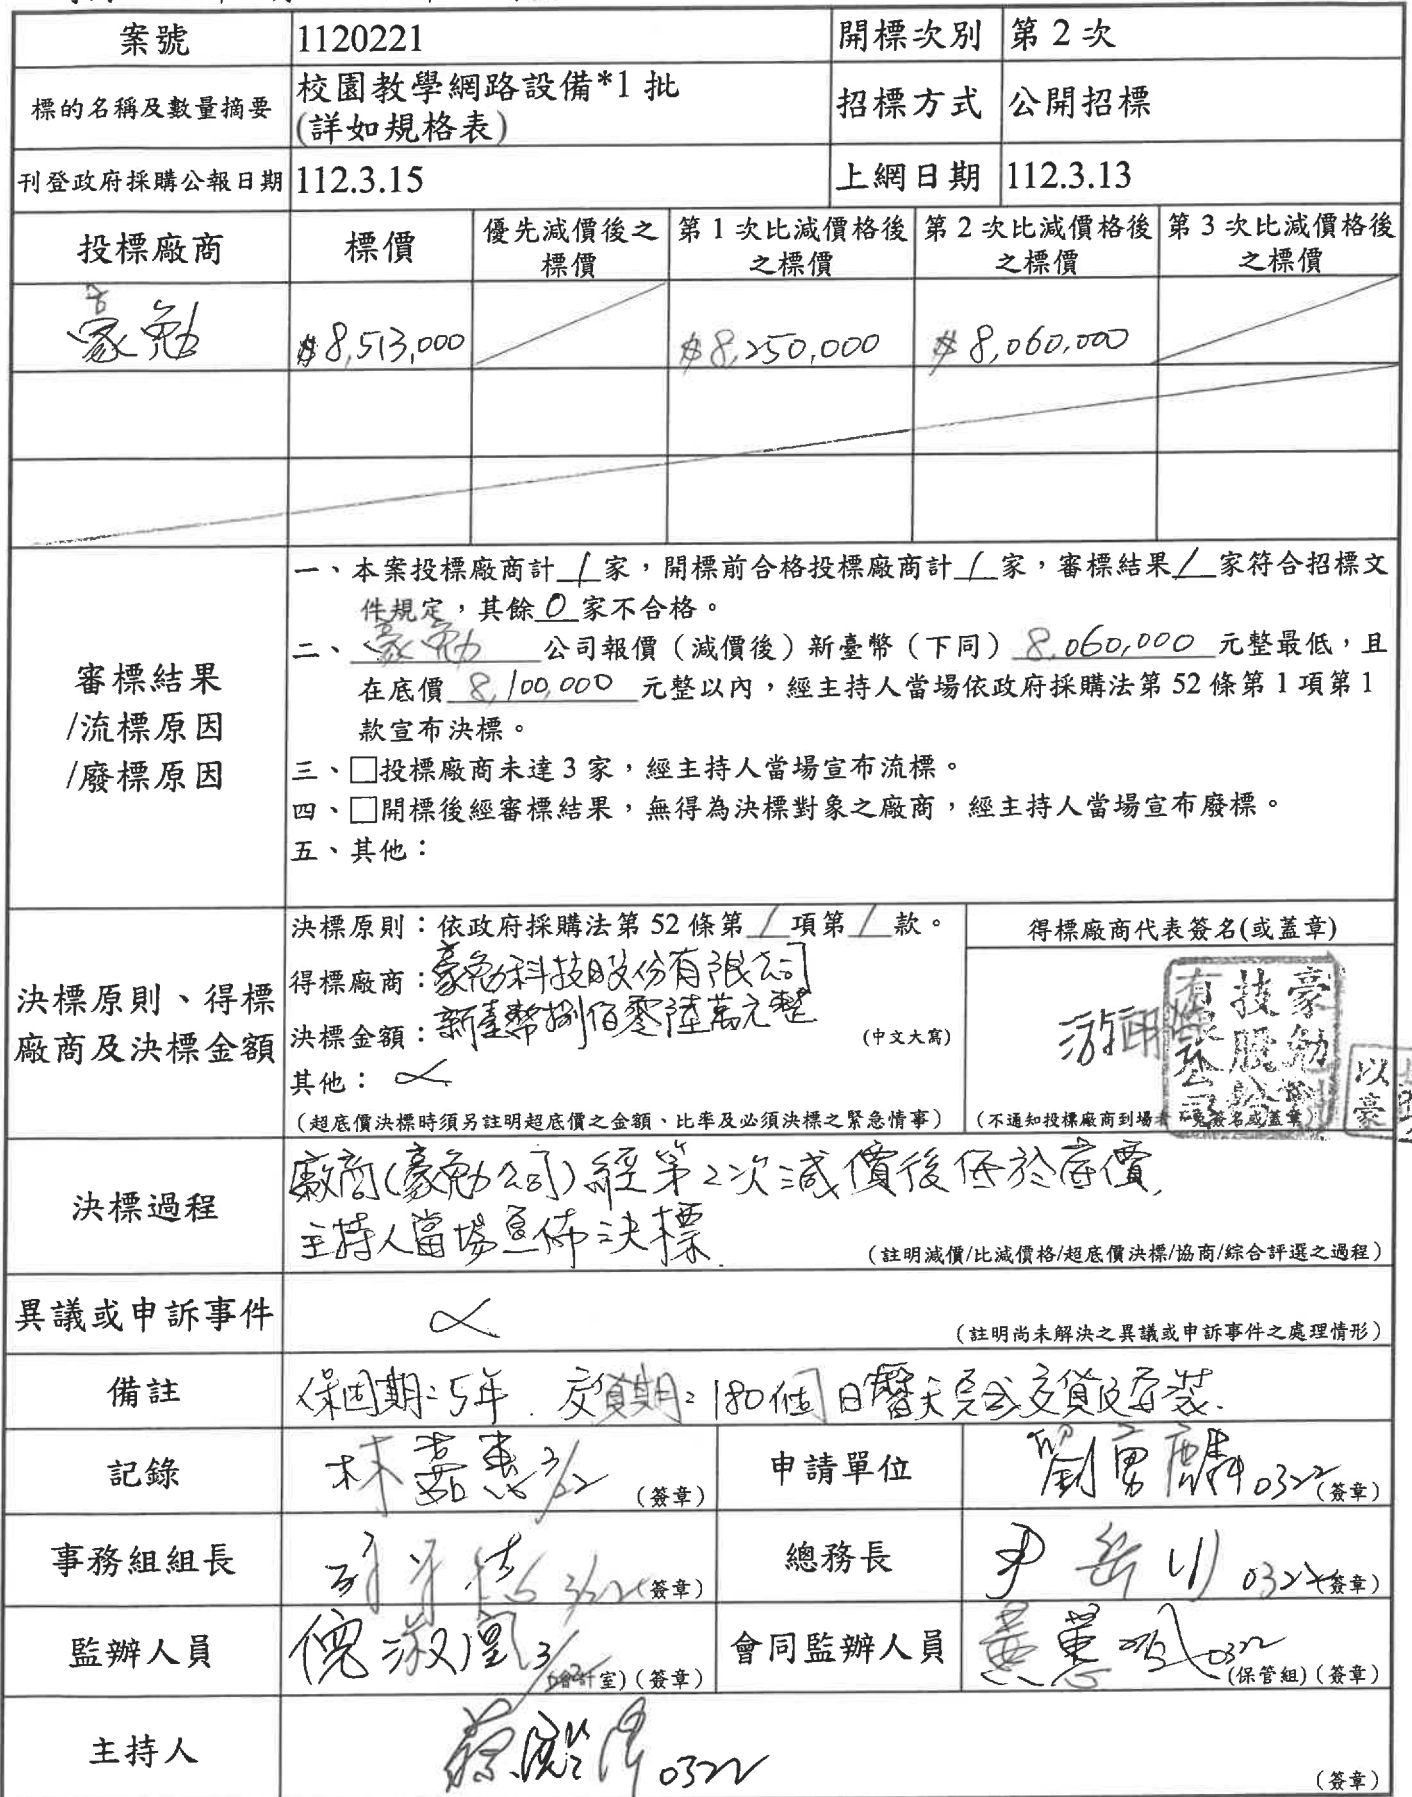 案號 1120221 開標次別 第 2 次
標的名稱及數量摘要 校園教學網路設備*1 批
(詳如規格表) 招標方式 公開招標
刊登政府採購公報日期 112.3.15 上網日期 112.3.13
投標廠商 標價 優先減價後之標價 第 1 次比減價格後之標價 第 2 次比減價格後之標價 第 3 次比減價格後之標價
豪勉 $8,513,000 $8,250,000 $8,060,000
審標結果
/流標原因
/廢標原因
一、本案投標廠商計 1 家，開標前合格投標廠商計 1 家，審標結果 1 家符合招標文
件規定，其餘 0 家不合格。
二、豪勉 公司報價（減價後）新臺幣（下同）8,060,000 元整最低，且
在底價 8,100,000 元整以內，經主持人當場依政府採購法第 52 條第 1 項第 1
款宣布決標。
三、□投標廠商未達 3 家，經主持人當場宣布流標。
四、□開標後經審標結果，無得為決標對象之廠商，經主持人當場宣布廢標。
五、其他：
決標原則、得標
廠商及決標金額
決標原則：依政府採購法第 52 條第 1 項第 1 款。
得標廠商：豪勉科技股份有限公司
決標金額：新臺幣捌佰零陸萬元整 (中文大寫)
其他：
（超底價決標時須另註明超底價之金額、比率及必須決標之緊急情事）
得標廠商代表簽名(或蓋章)
豪勉科技股份有限公司
(不通知投標廠商到場者 免簽名或蓋章)
決標過程
廠商(豪勉公司)經第2次減價後低於底價,
主持人當場宣佈決標.
（註明減價/比減價格/超底價決標/協商/綜合評選之過程）
異議或申訴事件 （註明尚未解決之異議或申訴事件之處理情形）
備註 保固期：5年. 交貨期：180個日曆天完成交貨及安裝.
記錄 林嘉惠 3/22 (簽章) 申請單位 0322 (簽章)
事務組組長 3/22 (簽章) 總務長 尹 岳川 0322 (簽章)
監辦人員 倪淑凰 3/ (會計室)(簽章) 會同監辦人員 黃蕙 0322 (保管組)(簽章)
主持人 0322 (簽章)